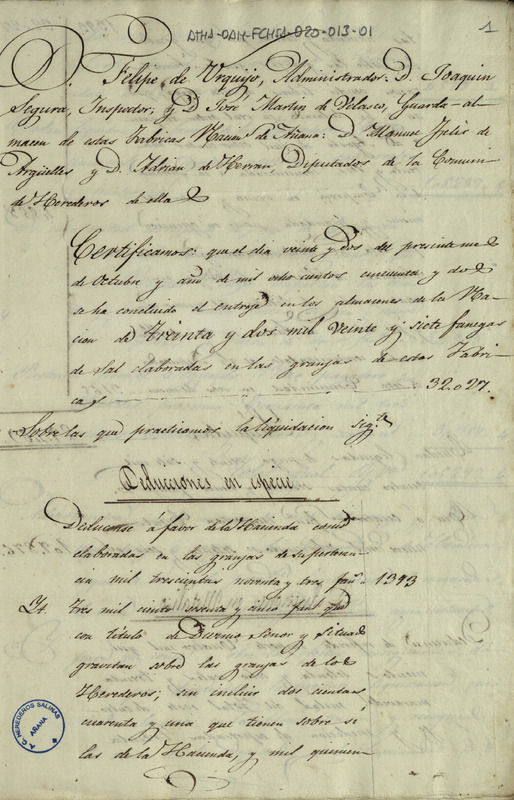 ATHA-DAH-FCHSA-020-013-01
1
D. Felipe de Urquijo, Administrador: D. Joaquin
Segura, Inspector; y D. José Martin de Velasco, Guarda-al-
macen de estas Fabricas de Añana: D. Manuel Felix de
Argüelles y D. Adrian de Herran, Diputados de la Comuni
de Herederos de ella
Certificamos: que el dia veinte y dos del presente mes
de Octubre y año de mil ocho cientos cincuenta y dos
se ha concluido el entroje en los almacenes de la Na-
cion de treinta y dos mil veinte y siete fanegas
de sal elaboradas en las granjas de estas Fabri-
cas 32.027.
Sobre las que practicamos la liquidacion sigte
Deducciones en especie
Deducense á favor de la Hacienda como
elaboradas en las granjas de su pertenen-
cia mil trescientas noventa y tres fans 1393
Yt. tres mil ciento y cinco que
con titulo de Dueno Señor y Situados
gravitan sobre las granjas de los
Herederos; sin incluir dos cientas
cuarenta y una que tienen sobre sí
las de la Hacienda, y mil quinien-
T. C. HEREDEROS SALINAS
AÑANA